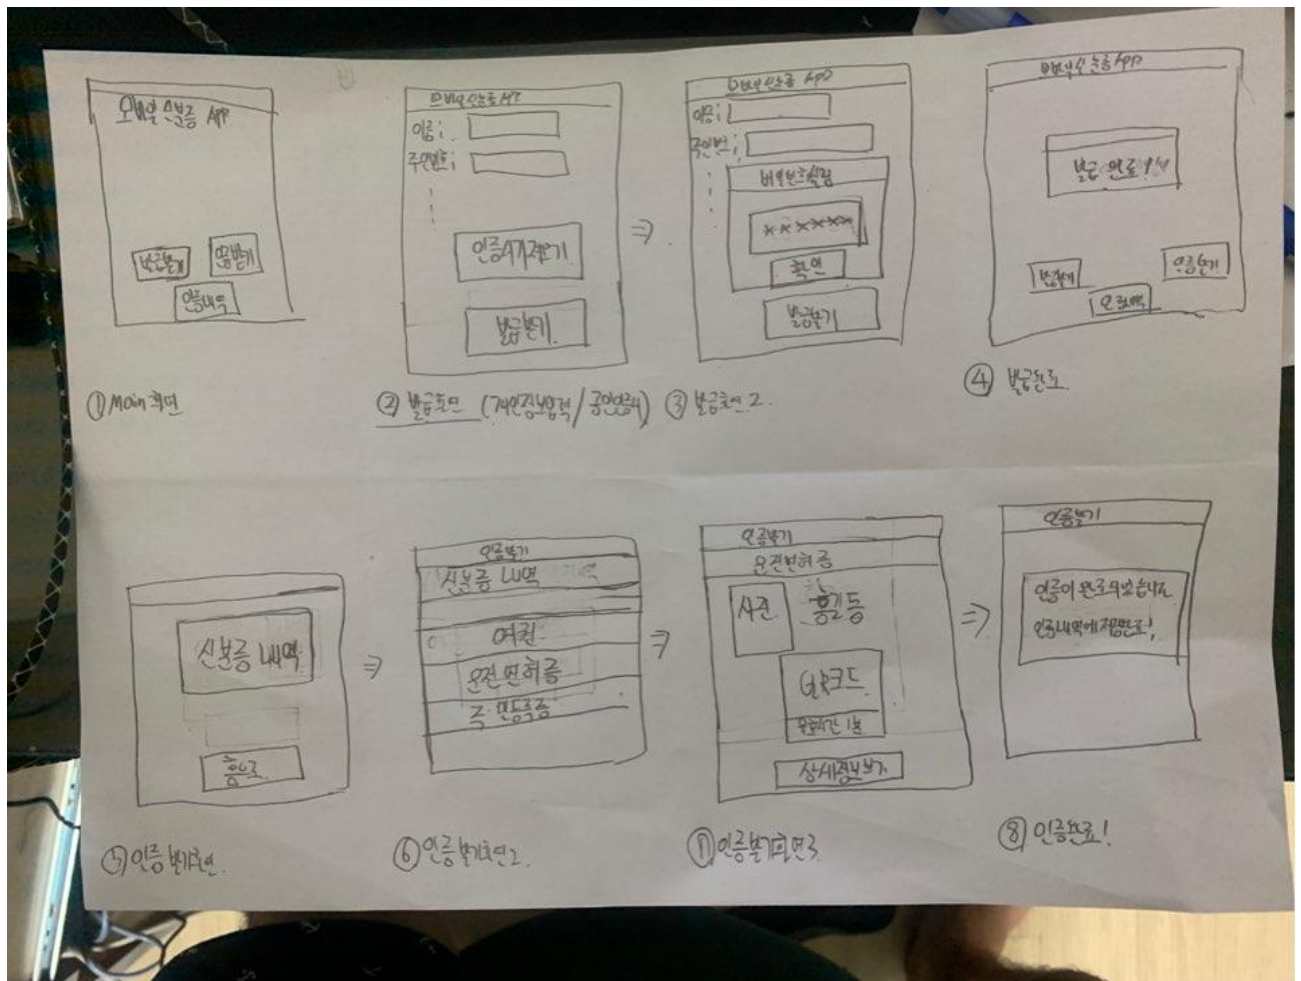 모바일 신분증 APP
발급받기
인증받기
인증내역
① Main 화면
모바일 신분증 APP
이름:
주민번호:
인증서가져오기
발급받기
② 발급화면 (개인정보입력/공인인증서)
모바일 신분증 APP
이름:
주민번호:
비밀번호설정
******
확인
발급받기
③ 발급화면 2.
모바일 신분증 APP
발급 완료!
발급받기
인증받기
인증내역
④ 발급완료.
신분증 내역
홈으로
⑤ 인증받기화면.
인증받기
신분증 내역
여권
운전면허증
주민등록증
⑥ 인증받기화면2.
인증받기
운전면허증
사진
홍길동
QR코드
유효시간 1분
상세정보보기
⑦ 인증받기화면3.
인증받기
인증이 완료되었습니다
인증내역에저장완료!
⑧ 인증완료!